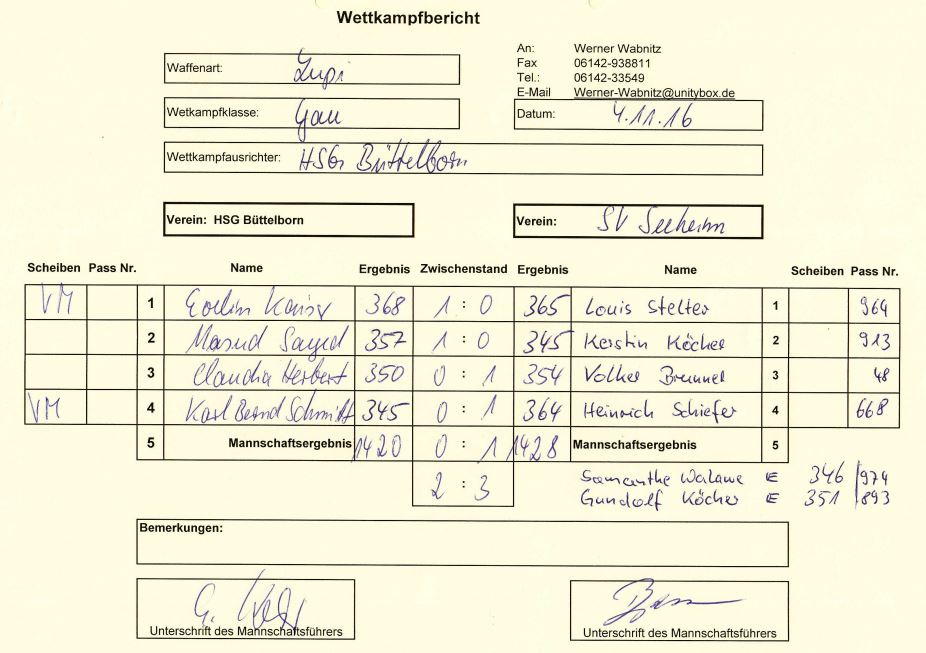 Wettkampfbericht
Waffenart: Lupi
An: Werner Wabnitz
Fax 06142-938811
Tel.: 06142-33549
E-Mail Werner-Wabnitz@unitybox.de
Wetkampfklasse: Gau
Datum: 4.11.16
Wettkampfausrichter: HSG Büttelborn
Verein: HSG Büttelborn
Verein: SV Seeheim
Scheiben Pass Nr. Name Ergebnis Zwischenstand Ergebnis Name Scheiben Pass Nr.
VM 1 Evelin Kaiser 368 1 : 0 365 Louis Stelter 1 964
2 Masud Sayed 357 1 : 0 345 Kerstin Köcher 2 913
3 Claudia Herbert 350 0 : 1 354 Volker Brunner 3 48
VM 4 Karl Bernd Schmitt 345 0 : 1 364 Heinrich Schiefer 4 668
5 Mannschaftsergebnis 1420 0 : 1 1428 Mannschaftsergebnis 5
2 : 3
Samantha E 346 / 974
Gundolf Köcher E 351 / 893
Bemerkungen:
Unterschrift des Mannschaftsführers
Unterschrift des Mannschaftsführers